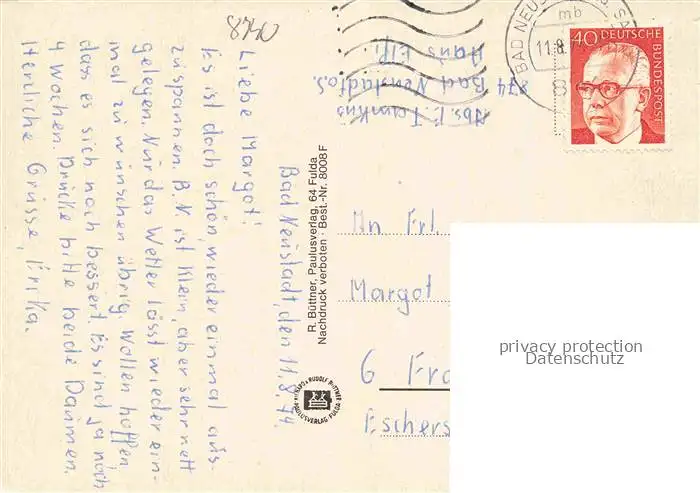 8740
Bad Neustadt, den 11.8.74.
Liebe Margot!
Es ist doch schön, wieder einmal aus-
zuspannen. B.N. ist klein, aber sehr nett
gelegen. Nur das Wetter lässt wieder ein-
mal zu wünschen übrig. Wollen hoffen
dass es sich noch bessert. Es sind ja noch
4 Wochen. Drücke bitte beide Daumen.
Herzliche Grüsse, Erika.
R. Büttner, Paulusverlag, 64 Fulda
Nachdruck verboten · Best.-Nr. 8008 F
RUDOLF BÜTTNER
PAULUSVERLAG FULDA
Abs. E.
Haus
874 Bad Neustadt a.S.
BAD NEUS
mb
11.8.
40 DEUTSCHE
BUNDESPOST
An Frl.
Margot
6 Fra
Eschers
privacy protection
Datenschutz